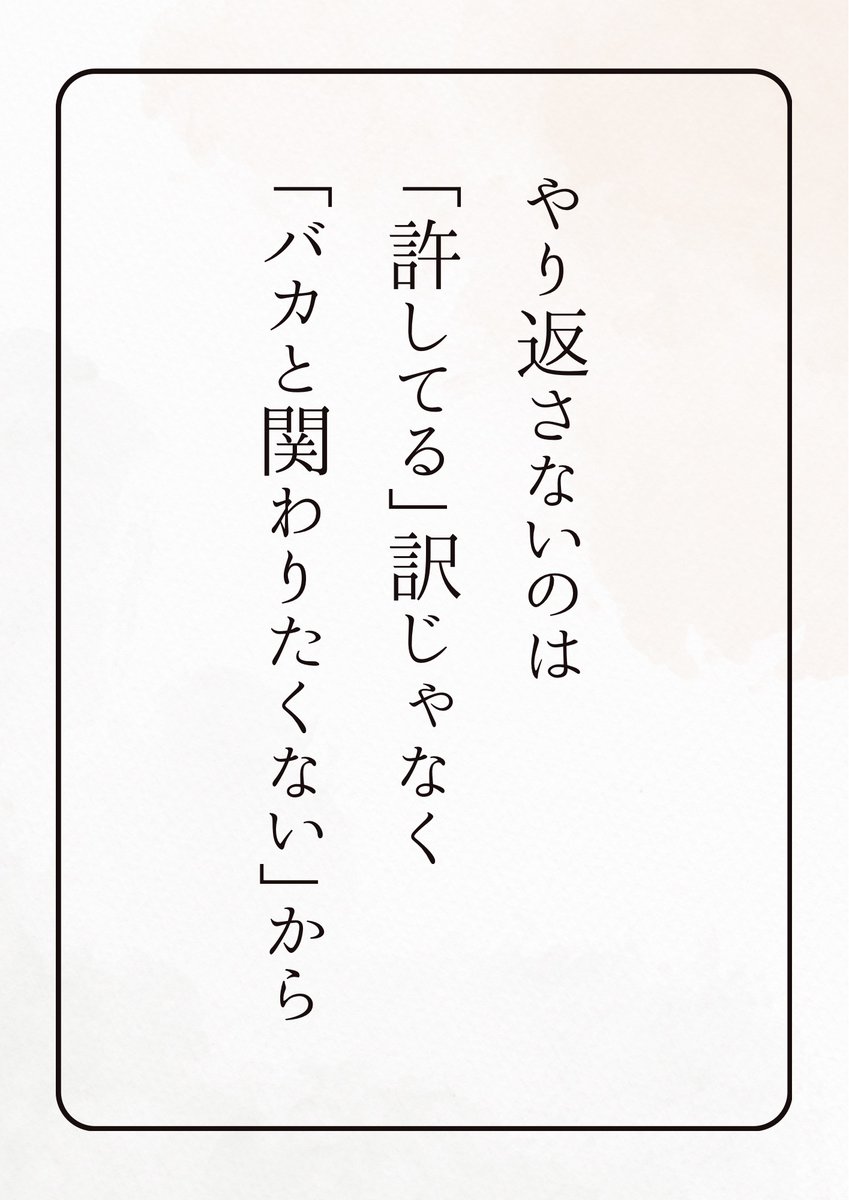 やり返さないのは
「許してる」訳じゃなく
「バカと関わりたくない」から